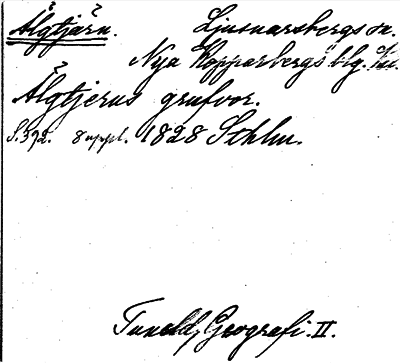 Älgtjärn. Ljusnarsbergs sn.
Nya Kopparbergs blg.
Älgtjerns grufvor.
S. 392. 8 uppl. 1828 Sthlm.
Tuneld, Geografi. II.